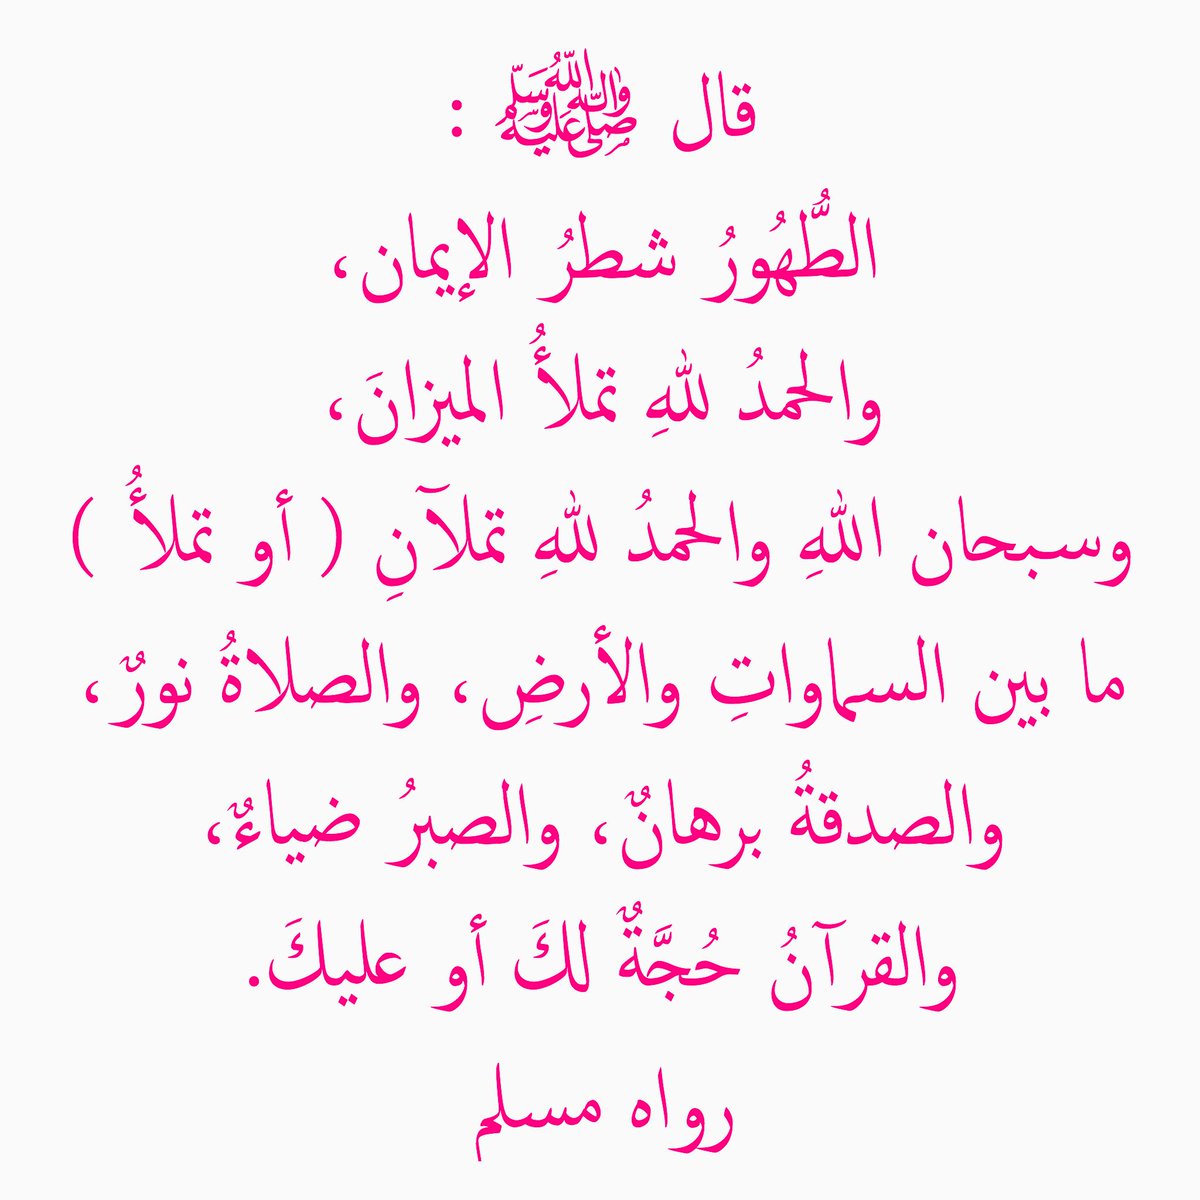 قال ﷺ :
الطُّهُورُ شطرُ الإيمان،
والحمدُ للهِ تملأُ الميزانَ،
وسبحان اللهِ والحمدُ للهِ تملآنِ ( أو تملأُ )
ما بين السماواتِ والأرضِ، والصلاةُ نورٌ،
والصدقةُ برهانٌ، والصبرُ ضياءٌ،
والقرآنُ حُجَّةٌ لكَ أو عليكَ.
رواه مسلم